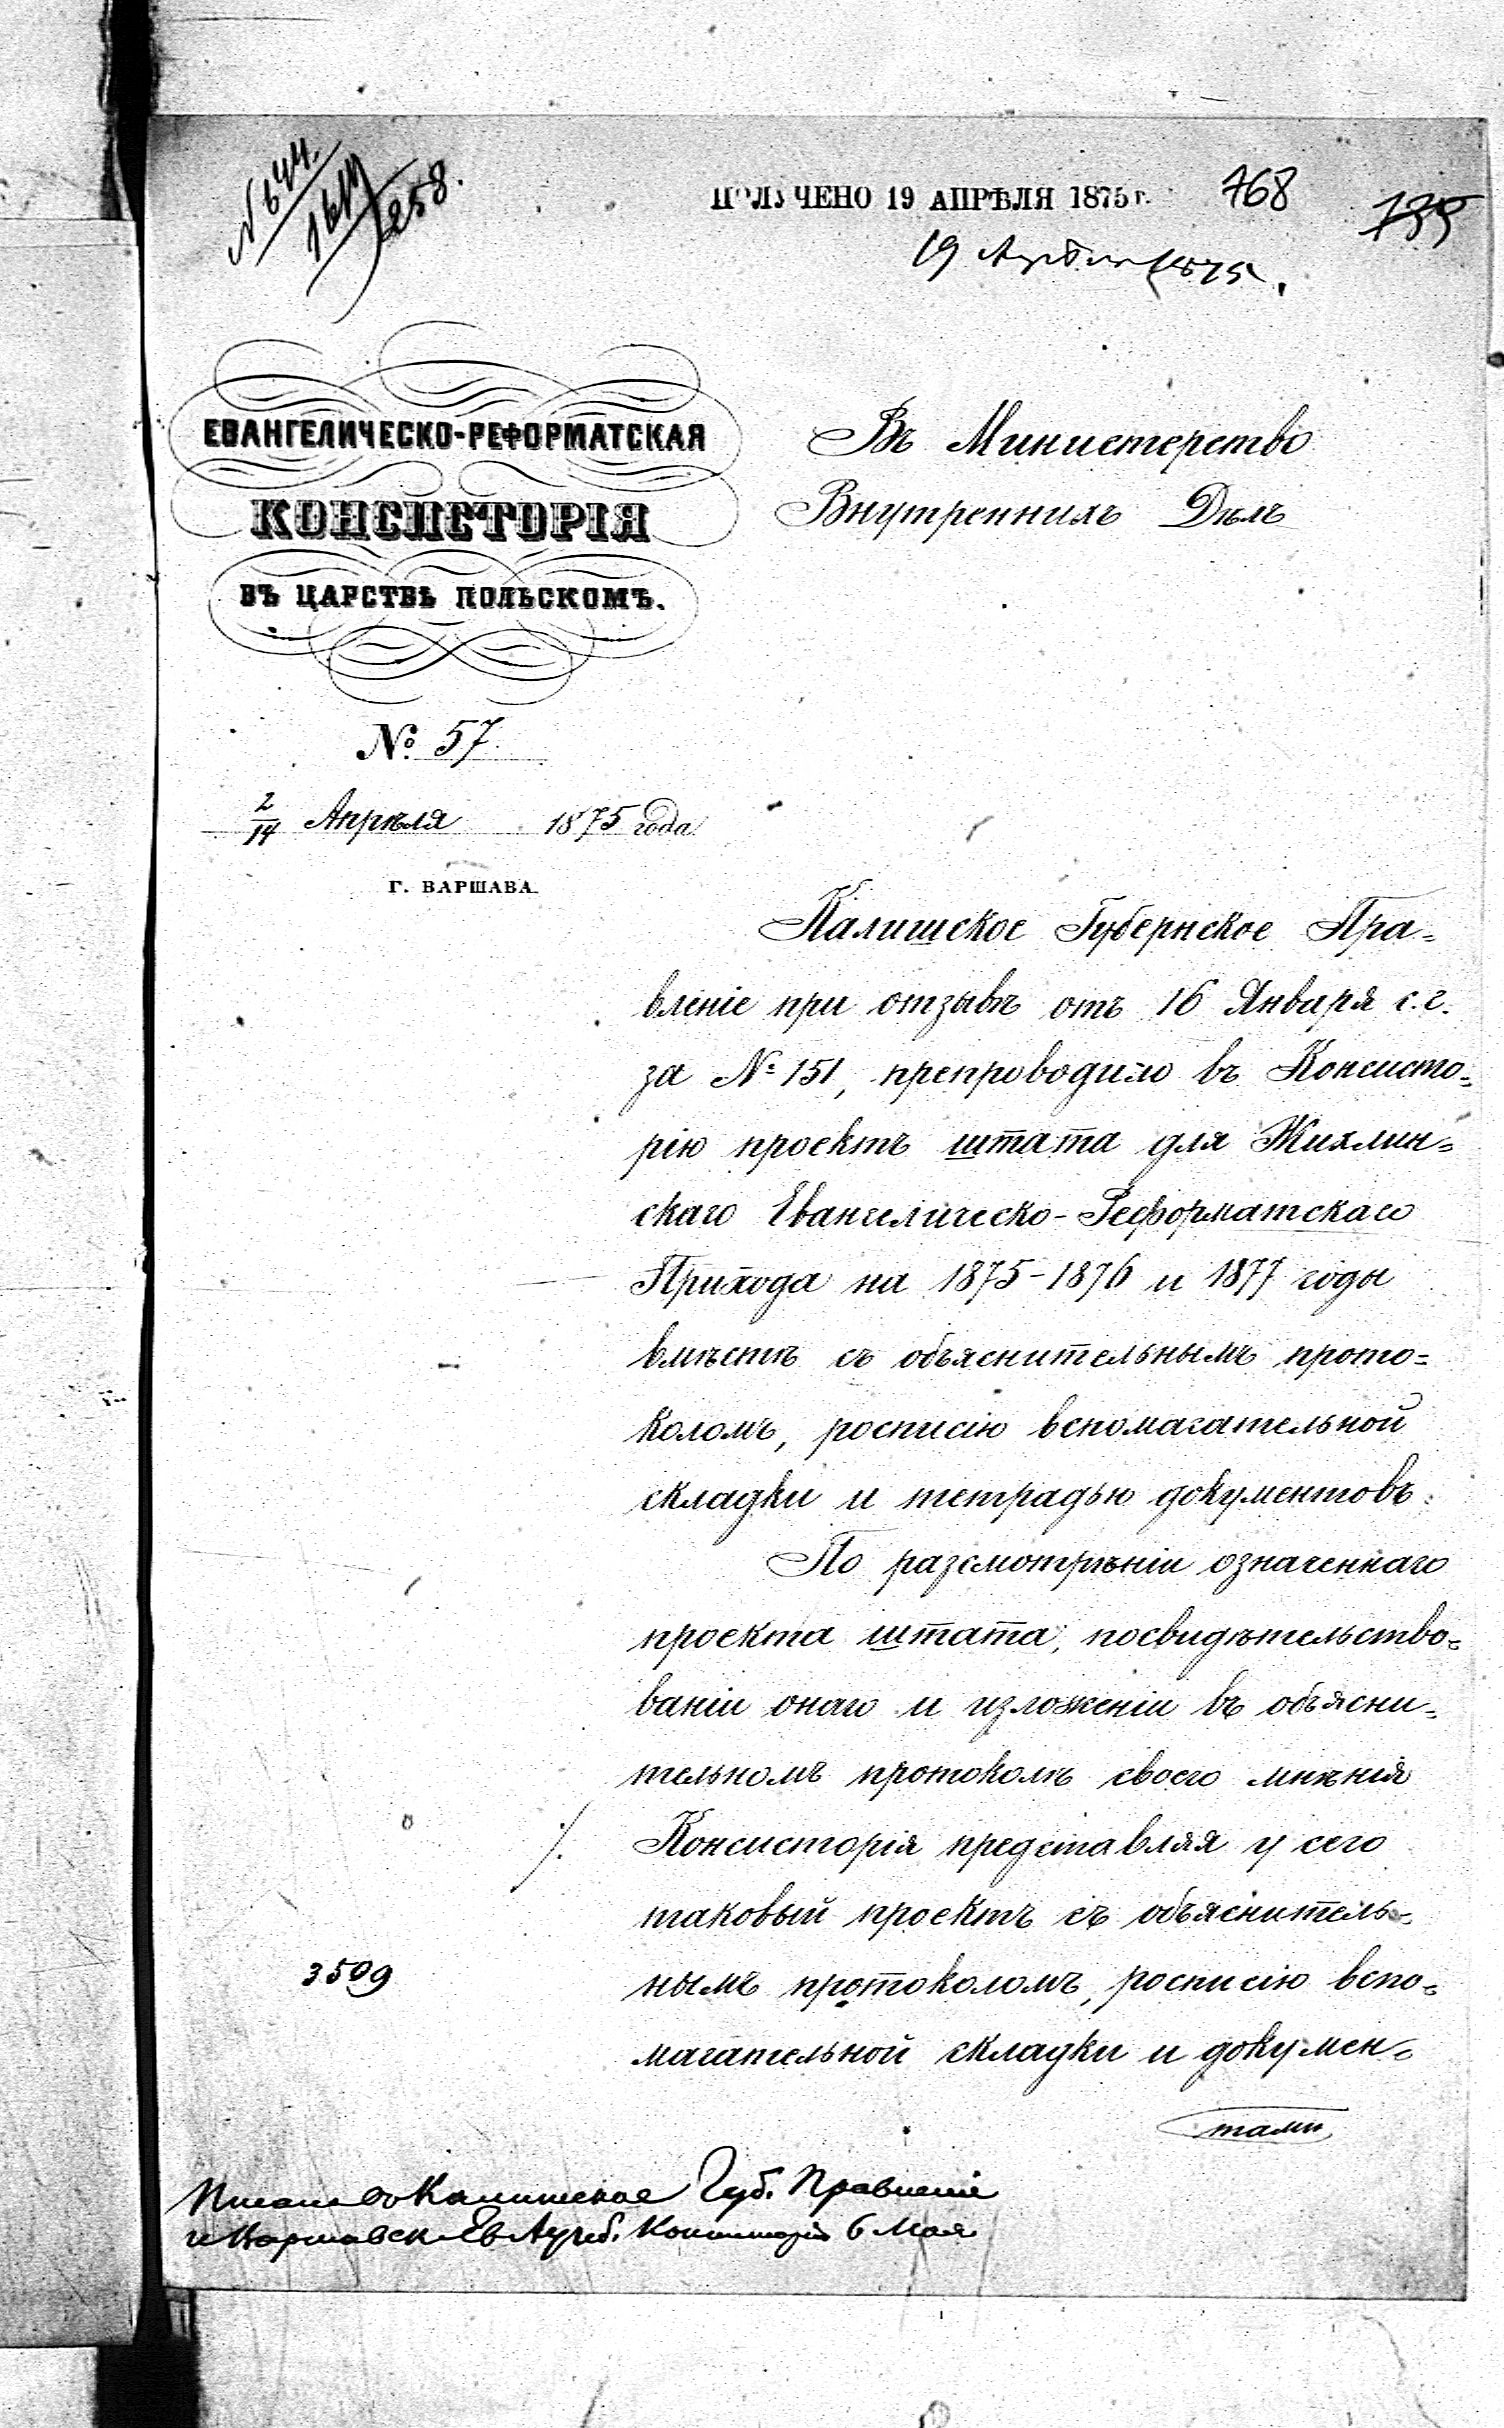 № 644.
1614
258.
ПОЛУЧЕНО 19 АПРѢЛЯ 1875 г.
768
735
19 Апрѣля 1875.
ЕВАНГЕЛИЧЕСКО-РЕФОРМАТСКАЯ
КОНСИСТОРІЯ
ВЪ ЦАРСТВѢ ПОЛЬСКОМЪ.
№ 57
2/14 Апрѣля 1875 года
Г. ВАРШАВА.
Въ Министерство
Внутреннихъ Дѣлъ
Калишское Губернское Пра=
вленіе при отзывѣ отъ 16 Января с.г.
за № 151, препроводило въ Консисто=
рію проектъ штата для Жихлин=
скаго Евангелическо-Реформатскаго
Прихода на 1875-1876 и 1877 годы
вмѣстѣ съ объяснительнымъ прото=
коломъ, росписію вспомагательной
складки и тетрадью документовъ.
По разсмотрѣніи означеннаго
проекта штата, посвидѣтельство=
ваніи онаго и изложеніи въ объясни=
тельномъ протоколѣ своего мнѣнія
Консисторія представляя у сего
таковый проектъ съ объяснитель=
нымъ протоколомъ, росписію вспо=
магательной складки и докумен=
тами
3509
Калишское Губ. Правленіе
6 Мая